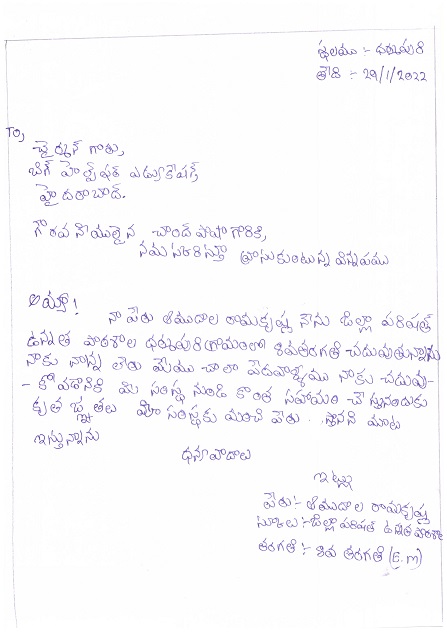 స్థలము :- ధర్మపురి
తేది :- 29/1/2022
To,
చైర్మన్ గారు,
బిగ్ హెల్ప్ ఫర్ ఎడ్యుకేషన్
హైదరాబాద్.
గౌరవనీయులైన చాంద్ పాషా గారికి,
నమస్కరిస్తూ వ్రాసుకుంటున్న విన్నపము
అయ్యా!
నా పేరు ఆముదాల రామకృష్ణ నేను జిల్లా పరిషత్
ఉన్నత పాఠశాల ధర్మపురి గ్రామంలో 8వ తరగతి చదువుతున్నాను
నాకు నాన్న లేరు మేము చాలా పేదవాళ్ళము నాకు చదువు-
- కోవడానికి మీ సంస్థ నుండి కొంత సహాయం చేస్తునందుకు
కృతజ్ఞతలు మీ సంస్థకు మంచి పేరు మాట
ఇస్తున్నాను
ధన్యవాదాలు
ఇట్లు
పేరు :- ఆముదాల రామకృష్ణ
స్కూలు :- జిల్లా పరిషత్ ఉన్నత పాఠశాల
తరగతి :- 8వ తరగతి (E.m)